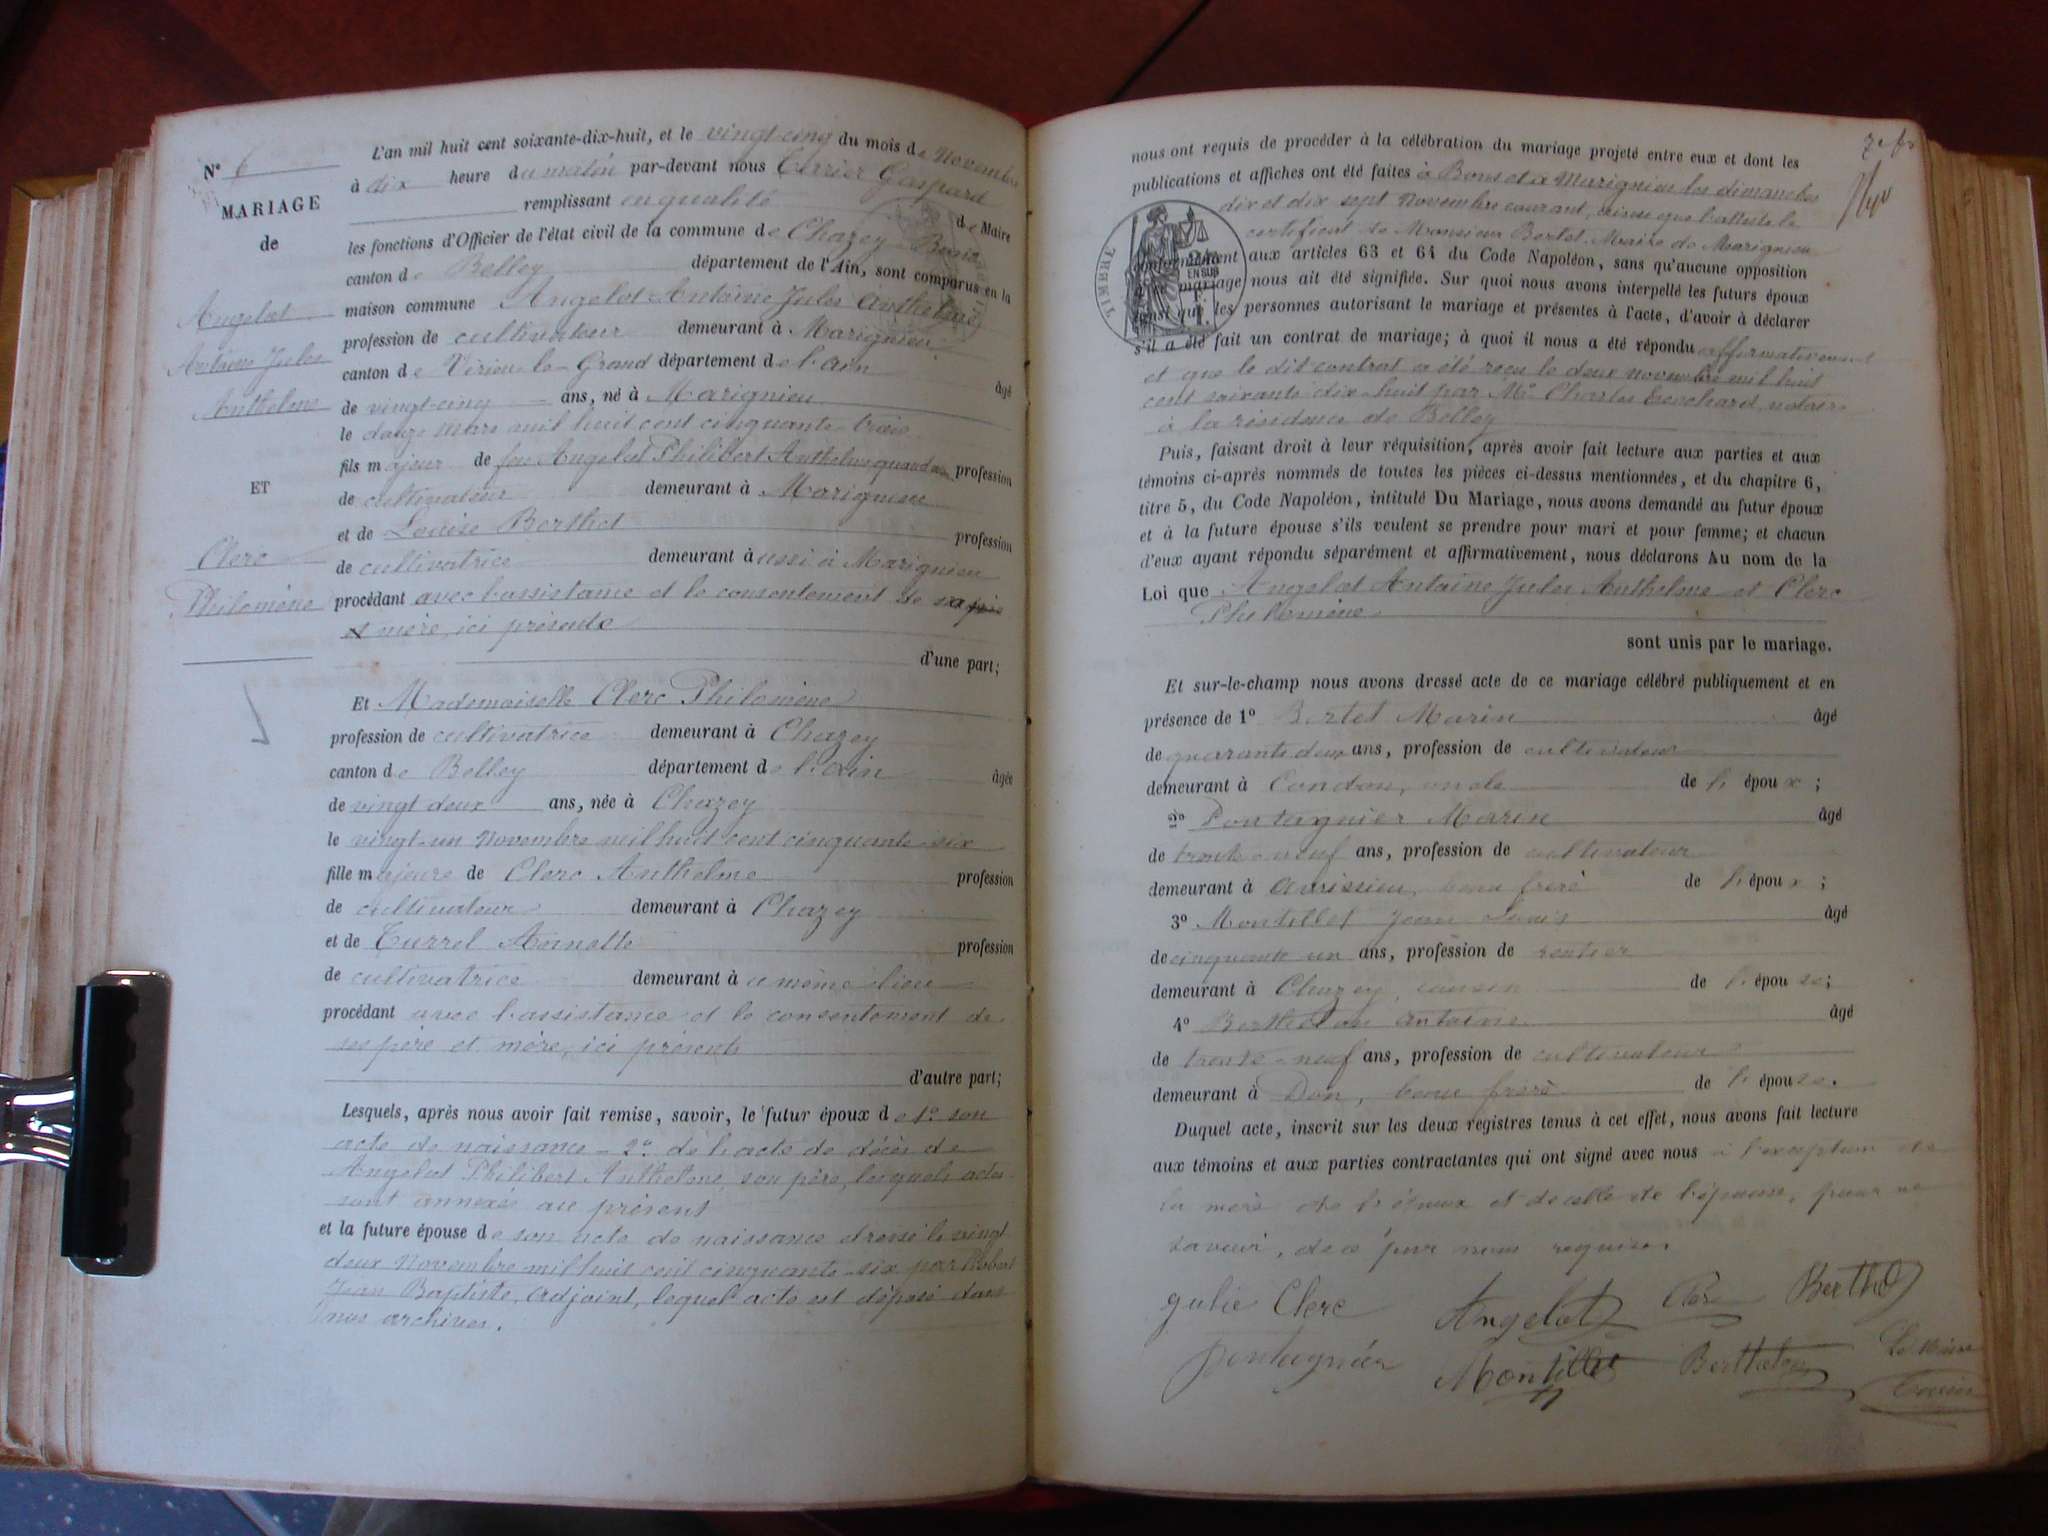 N° 6
MARIAGE
de
Angelot
Antoine Jules
Anthelme
ET
Clerc
Philomène
L'an mil huit cent soixante-dix-huit, et le vingt-cinq du mois de Novembre
à dix heure du matin par-devant nous Gaspard
remplissant en qualité de Maire
les fonctions d'Officier de l'état civil de la commune de Chazey-Bons
canton de Belley département de l'Ain, sont comparus en la
maison commune Angelot Antoine Jules Anthelme
profession de cultivateur demeurant à Marignieu
canton de Virieu-le-Grand département de l'ain âgé
de vingt-cinq ans, né à Marignieu
le douze mars mil huit cent cinquante trois
fils majeur de feu Angelot Philibert Anthelme quand vivait profession
de cultivateur demeurant à Marignieu
et de Louise Berthet profession
de cultivatrice demeurant aussi à Marignieu
procédant avec l'assistance et le consentement de sa père
et mère, ici présente
d'une part;
Et Mademoiselle Clerc Philomène
profession de cultivatrice demeurant à Chazey
canton de Belley département de l'ain âgée
de vingt deux ans, née à Chazey
le vingt-un Novembre mil huit cent cinquante-six
fille majeure de Clerc Anthelme profession
de cultivateur demeurant à Chazey
et de Turrel Annette profession
de cultivatrice demeurant au même lieu
procédant avec l'assistance et le consentement de
ses père et mère, ici présents
d'autre part;
Lesquels, après nous avoir fait remise, savoir, le futur époux de 1° son
acte de naissance - 2° de l'acte de décès de
Angelot Philibert Anthelme, son père, lesquels actes
sont annexés au présent
et la future épouse de son acte de naissance dressé le vingt
deux Novembre mil huit cent cinquante-six par
Jean Baptiste, adjoint, lequel acte est déposé dans
nos archives.
nous ont requis de procéder à la célébration du mariage projeté entre eux et dont les
publications et affiches ont été faites à Bons et à Marignieu les dimanches
dix et dix sept Novembre courant, ainsi que l'atteste le
certificat de Monsieur Bertet Maire de Marignieu
conformément aux articles 63 et 64 du Code Napoléon, sans qu'aucune opposition
mariage nous ait été signifiée. Sur quoi nous avons interpellé les futurs époux
ainsi que les personnes autorisant le mariage et présentes à l'acte, d'avoir à déclarer
s'il a été fait un contrat de mariage; à quoi il nous a été répondu affirmativement
et que le dit contrat a été reçu le deux novembre mil huit
cent soixante dix-huit par Me Charles notaire
à la résidence de Belley
TIMBRE
EN SUS
Puis, faisant droit à leur réquisition, après avoir fait lecture aux parties et aux
témoins ci-après nommés de toutes les pièces ci-dessus mentionnées, et du chapitre 6,
titre 5, du Code Napoléon, intitulé Du Mariage, nous avons demandé au futur époux
et à la future épouse s'ils veulent se prendre pour mari et pour femme; et chacun
d'eux ayant répondu séparément et affirmativement, nous déclarons Au nom de la
Loi que Angelot Antoine Jules Anthelme et Clerc
Philomène
sont unis par le mariage.
Et sur-le-champ nous avons dressé acte de ce mariage célébré publiquement et en
présence de 1° Bertet Marin âgé
de quarante deux ans, profession de cultivateur
demeurant à Condon, oncle de l'époux;
2° Pontagnier Marin âgé
de trente-neuf ans, profession de cultivateur
demeurant à Aurissieu, beau frère de l'époux;
3° Montillet Jean Louis âgé
de cinquante un ans, profession de rentier
demeurant à Chazey, cousin de l'épouse;
4° Berthelon Antoine âgé
de trente-neuf ans, profession de cultivateur
demeurant à Don, beau frère de l'épouse.
Duquel acte, inscrit sur les deux registres tenus à cet effet, nous avons fait lecture
aux témoins et aux parties contractantes qui ont signé avec nous à l'exception de
la mère de l'époux et de celle de l'épouse, pour ne
savoir, de ce par nous requises.
julie Clerc Angelot Clerc Berthet
pontagnier Montillet Berthelon Le Maire